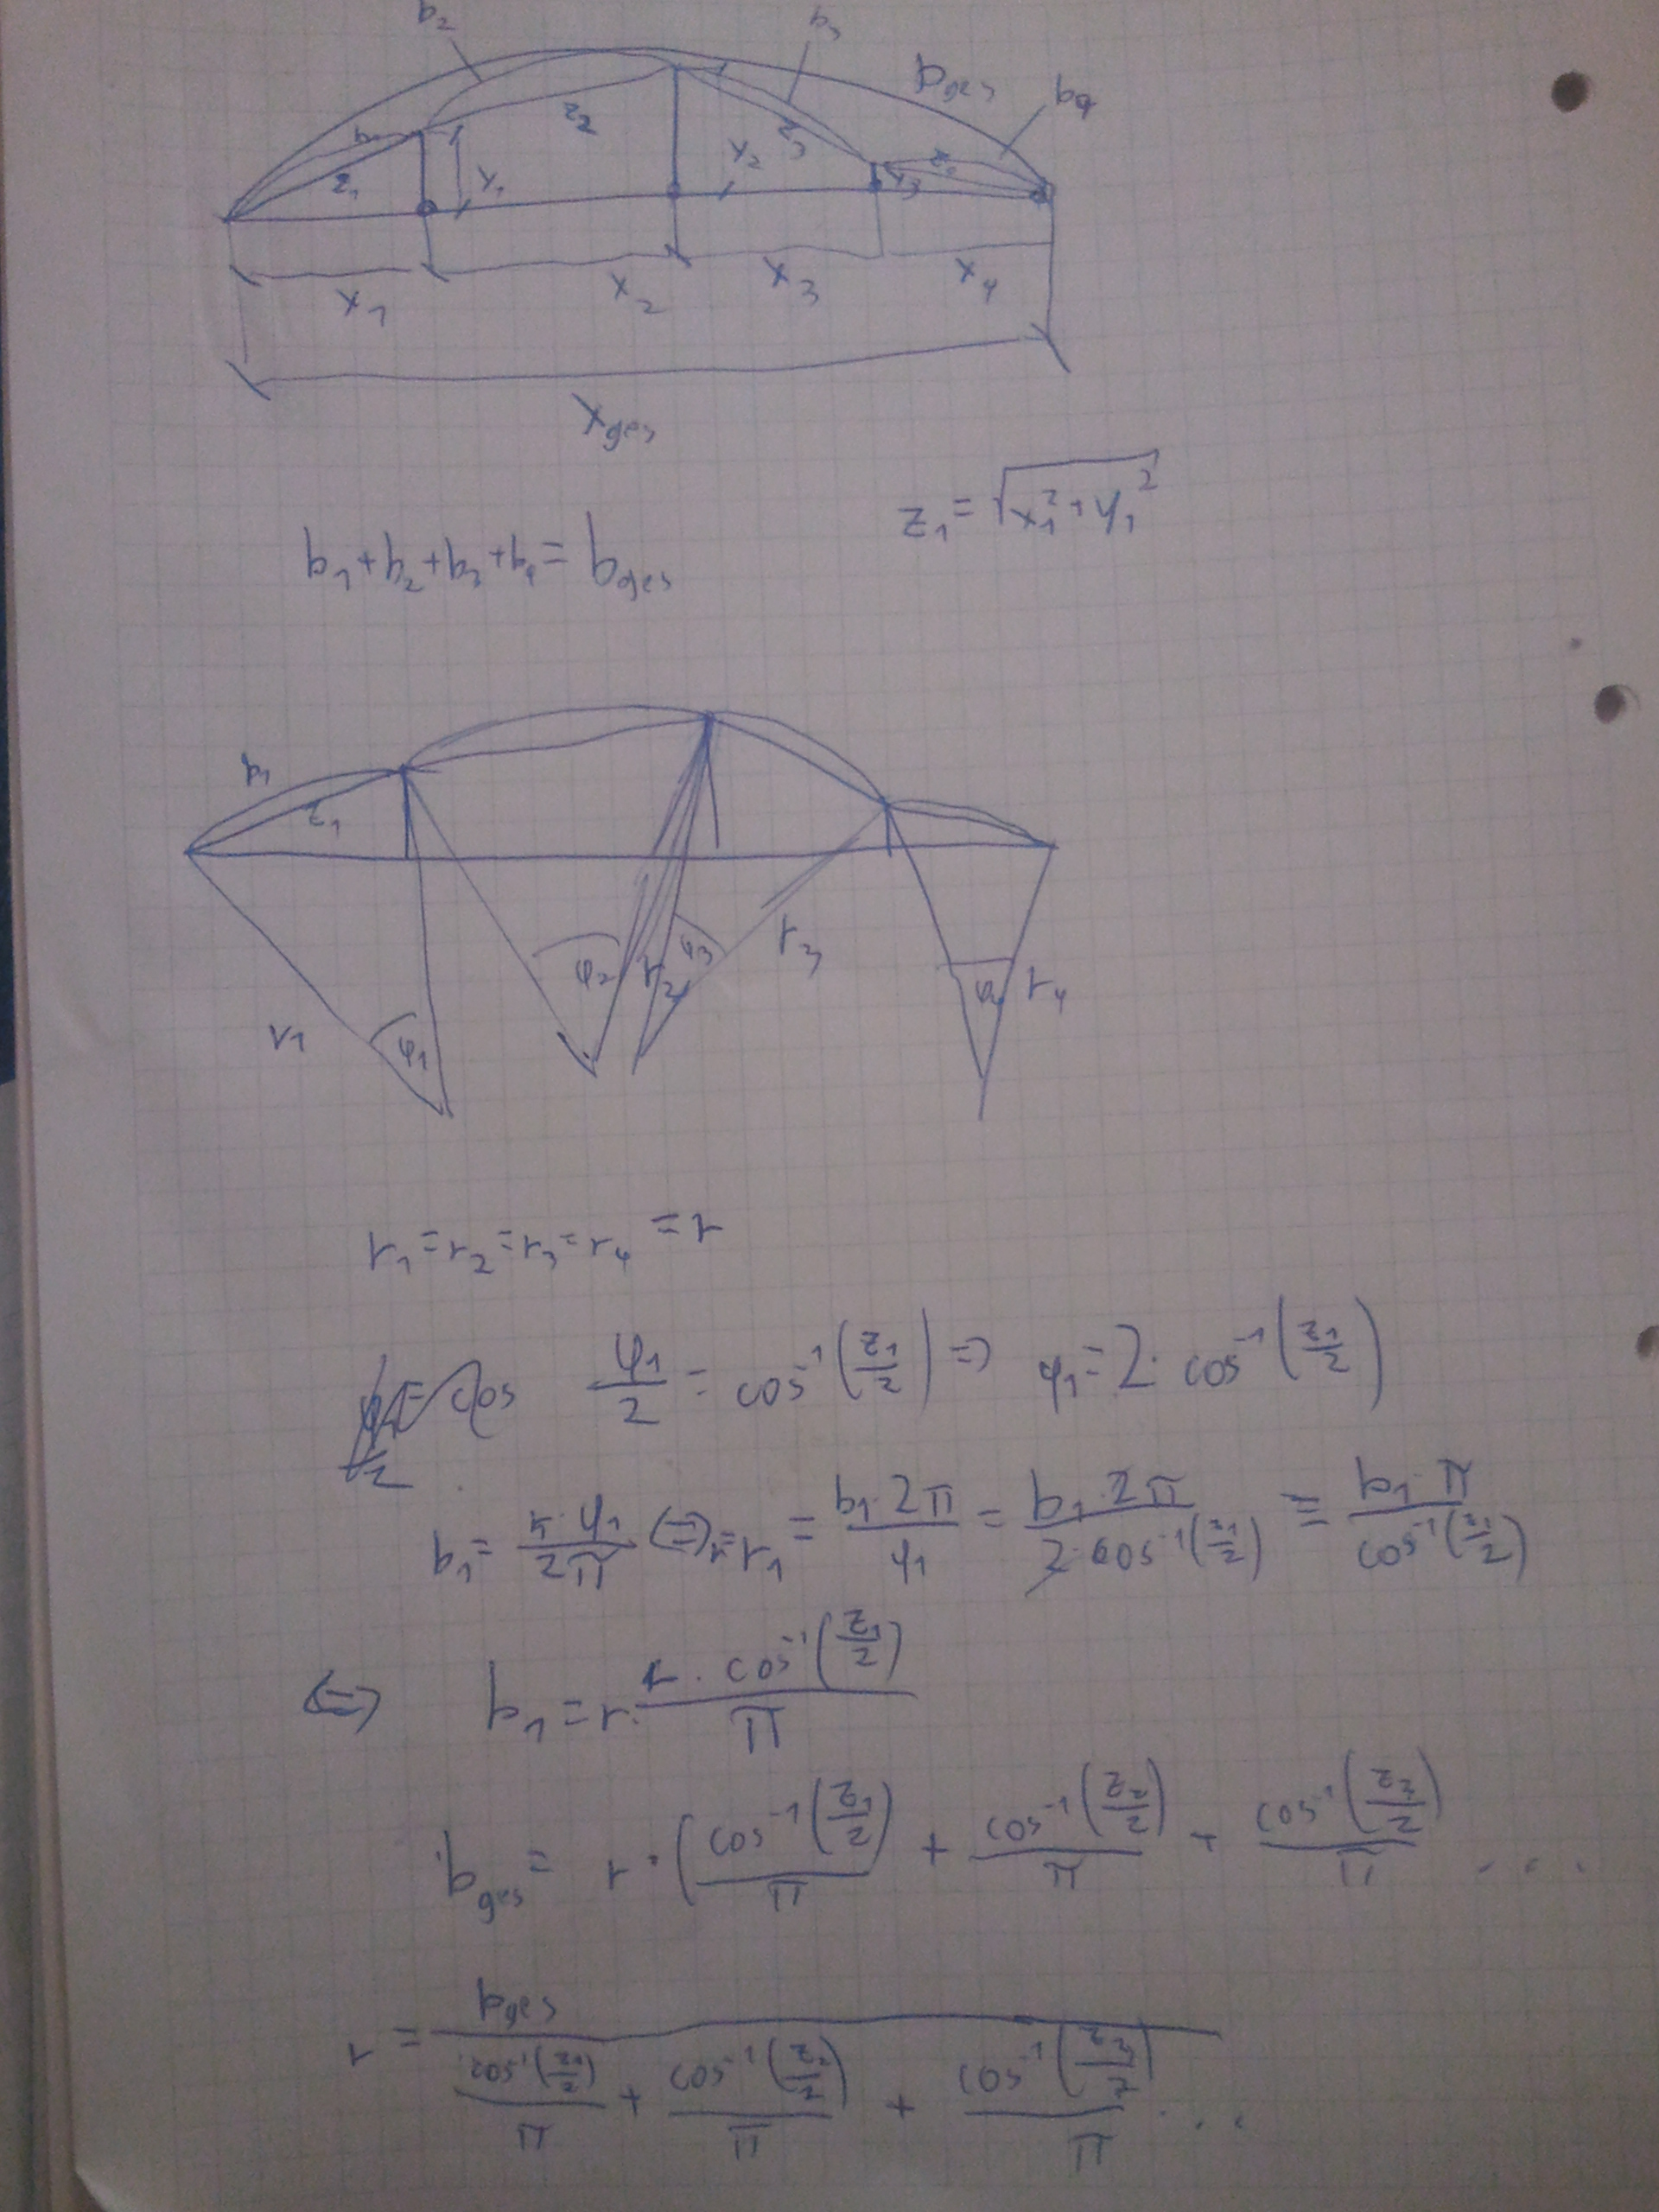 b₂ b₃ b_ges b₄
b₁ z₂ z₃ z₄
z₁ y₁ y₂ y₃
x₁ x₂ x₃ x₄
x_ges
z₁ = √(x₁² + y₁²)
b₁ + b₂ + b₃ + b₄ = b_ges
b₁
z₁
φ₂ r₂ φ₃ r₃
r₁ φ₁ φ₄ r₄
r₁ = r₂ = r₃ = r₄ = r
cos φ₁/2 = cos⁻¹(z₁/2) ⇒ φ₁ = 2 · cos⁻¹(z₁/2)
b₁ = r · φ₁ / 2π ⇔ r = r₁ = b₁ · 2π / φ₁ = b₁ · 2π / 2 · cos⁻¹(z₁/2) = b₁ · π / cos⁻¹(z₁/2)
⇔ b₁ = r · r · cos⁻¹(z₁/2) / π
b_ges = r · (cos⁻¹(z₁/2) / π + cos⁻¹(z₂/2) / π + cos⁻¹(z₃/2) / π ...
r = b_ges / cos⁻¹(z₁/2) / π + cos⁻¹(z₂/2) / π + cos⁻¹(z₃/2) / π ...